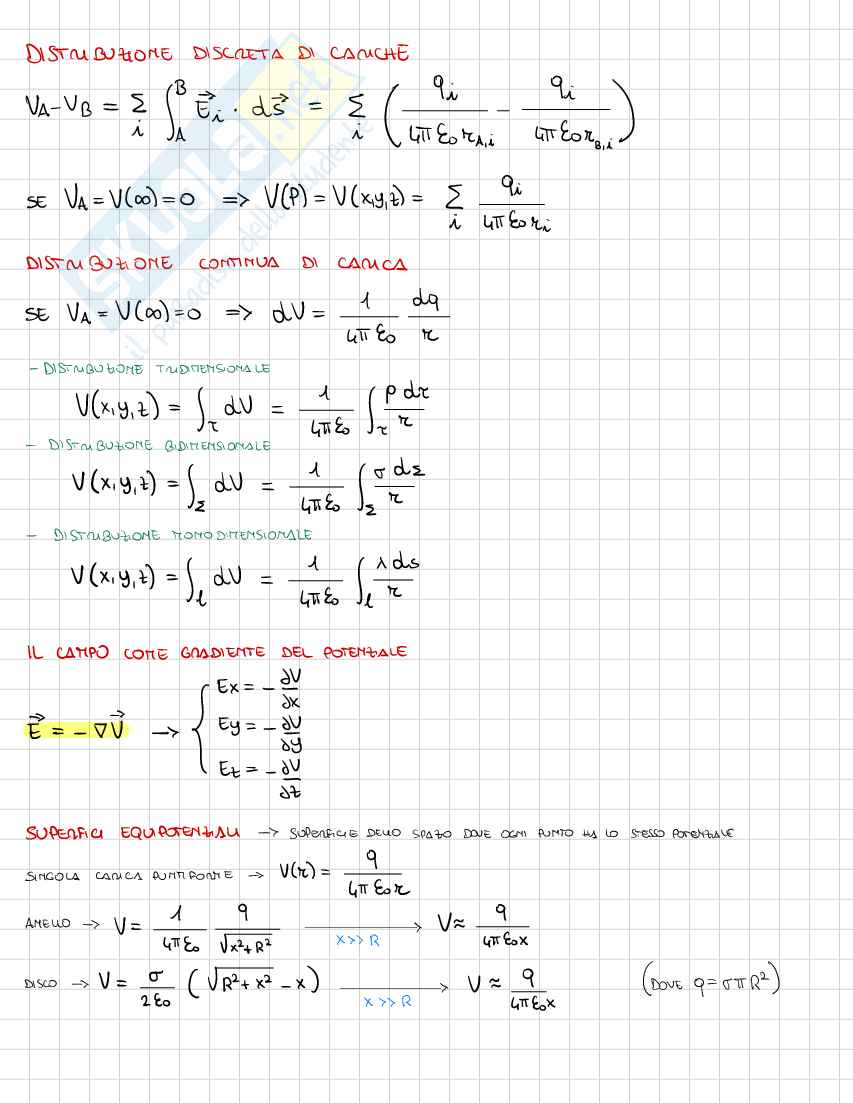 DISTRIBUZIONE DISCRETA DI CARICHE
V_A - V_B = Σ_i ∫_A^B E⃗_i · ds⃗ = Σ_i ( q_i / 4πε₀r_A,i - q_i / 4πε₀r_B,i )
SE V_A = V(∞) = 0 => V(P) = V(x,y,z) = Σ_i q_i / 4πε₀r_i
DISTRIBUZIONE CONTINUA DI CARICA
SE V_A = V(∞) = 0 => dV = 1/4πε₀ dq/r
- DISTRIBUZIONE TRIDIMENSIONALE
V(x,y,z) = ∫_τ dV = 1/4πε₀ ∫_τ ρ dτ/r
- DISTRIBUZIONE BIDIMENSIONALE
V(x,y,z) = ∫_Σ dV = 1/4πε₀ ∫_Σ σ dΣ/r
- DISTRIBUZIONE MONODIMENSIONALE
V(x,y,z) = ∫_l dV = 1/4πε₀ ∫_l λ ds/r
IL CAMPO COME GRADIENTE DEL POTENZIALE
E⃗ = - ∇V⃗ → { Ex = - ∂V/∂x
Ey = - ∂V/∂y
Ez = - ∂V/∂z
SUPERFICI EQUIPOTENZIALI → SUPERFICIE DELLO SPAZIO DOVE OGNI PUNTO HA LO STESSO POTENZIALE
SINGOLA CARICA PUNTIFORME → V(r) = q / 4πε₀r
ANELLO → V = 1/4πε₀ q/√(x²+R²) → x>>R V ≈ q/4πε₀x
DISCO → V = σ/2ε₀ ( √(R²+x²) - x ) → x>>R V ≈ q/4πε₀x (DOVE q = σπR²)
SKUOLA.net
il paradiso dello studente